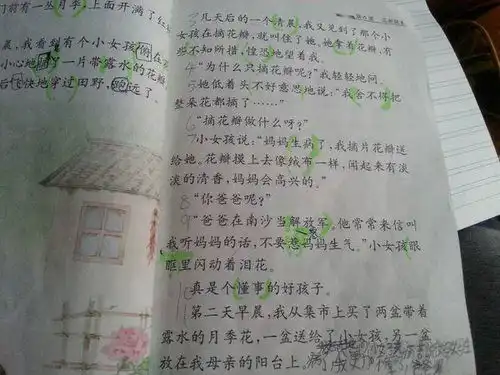 门前有一丛月季,上面开满了红
晨,我看到有个小女孩俯在
小心地摘了一片带露水的花瓣
后飞快地穿过田野,跑远了。
3 几天后的一个清晨,我又见到了那个小
女孩在摘花瓣,就叫住了她。她拿着花瓣,有
些不知所措,惶恐地望着我。
4 “为什么只摘花瓣呢?”我轻轻地问。
5 她低着头不好意思地说:“我舍不得把
整朵花都摘了……”
6 “摘花瓣做什么呀?”
7 小女孩说:“妈妈生病了,我摘片花瓣送
给她。花瓣摸上去像绒布一样,闻起来有淡
淡的清香,妈妈会高兴的。”
8 “你爸爸呢?”
9 “爸爸在南沙当解放军。他常常来信叫
我听妈妈的话,不要惹妈妈生气。”小女孩眼
眶里闪动着泪花。
10 真是个懂事的好孩子。
11 第二天早晨,我从集市上买了两盆带着
露水的月季花,一盆送给了小女孩,另一盆
放在我母亲的阳台上。